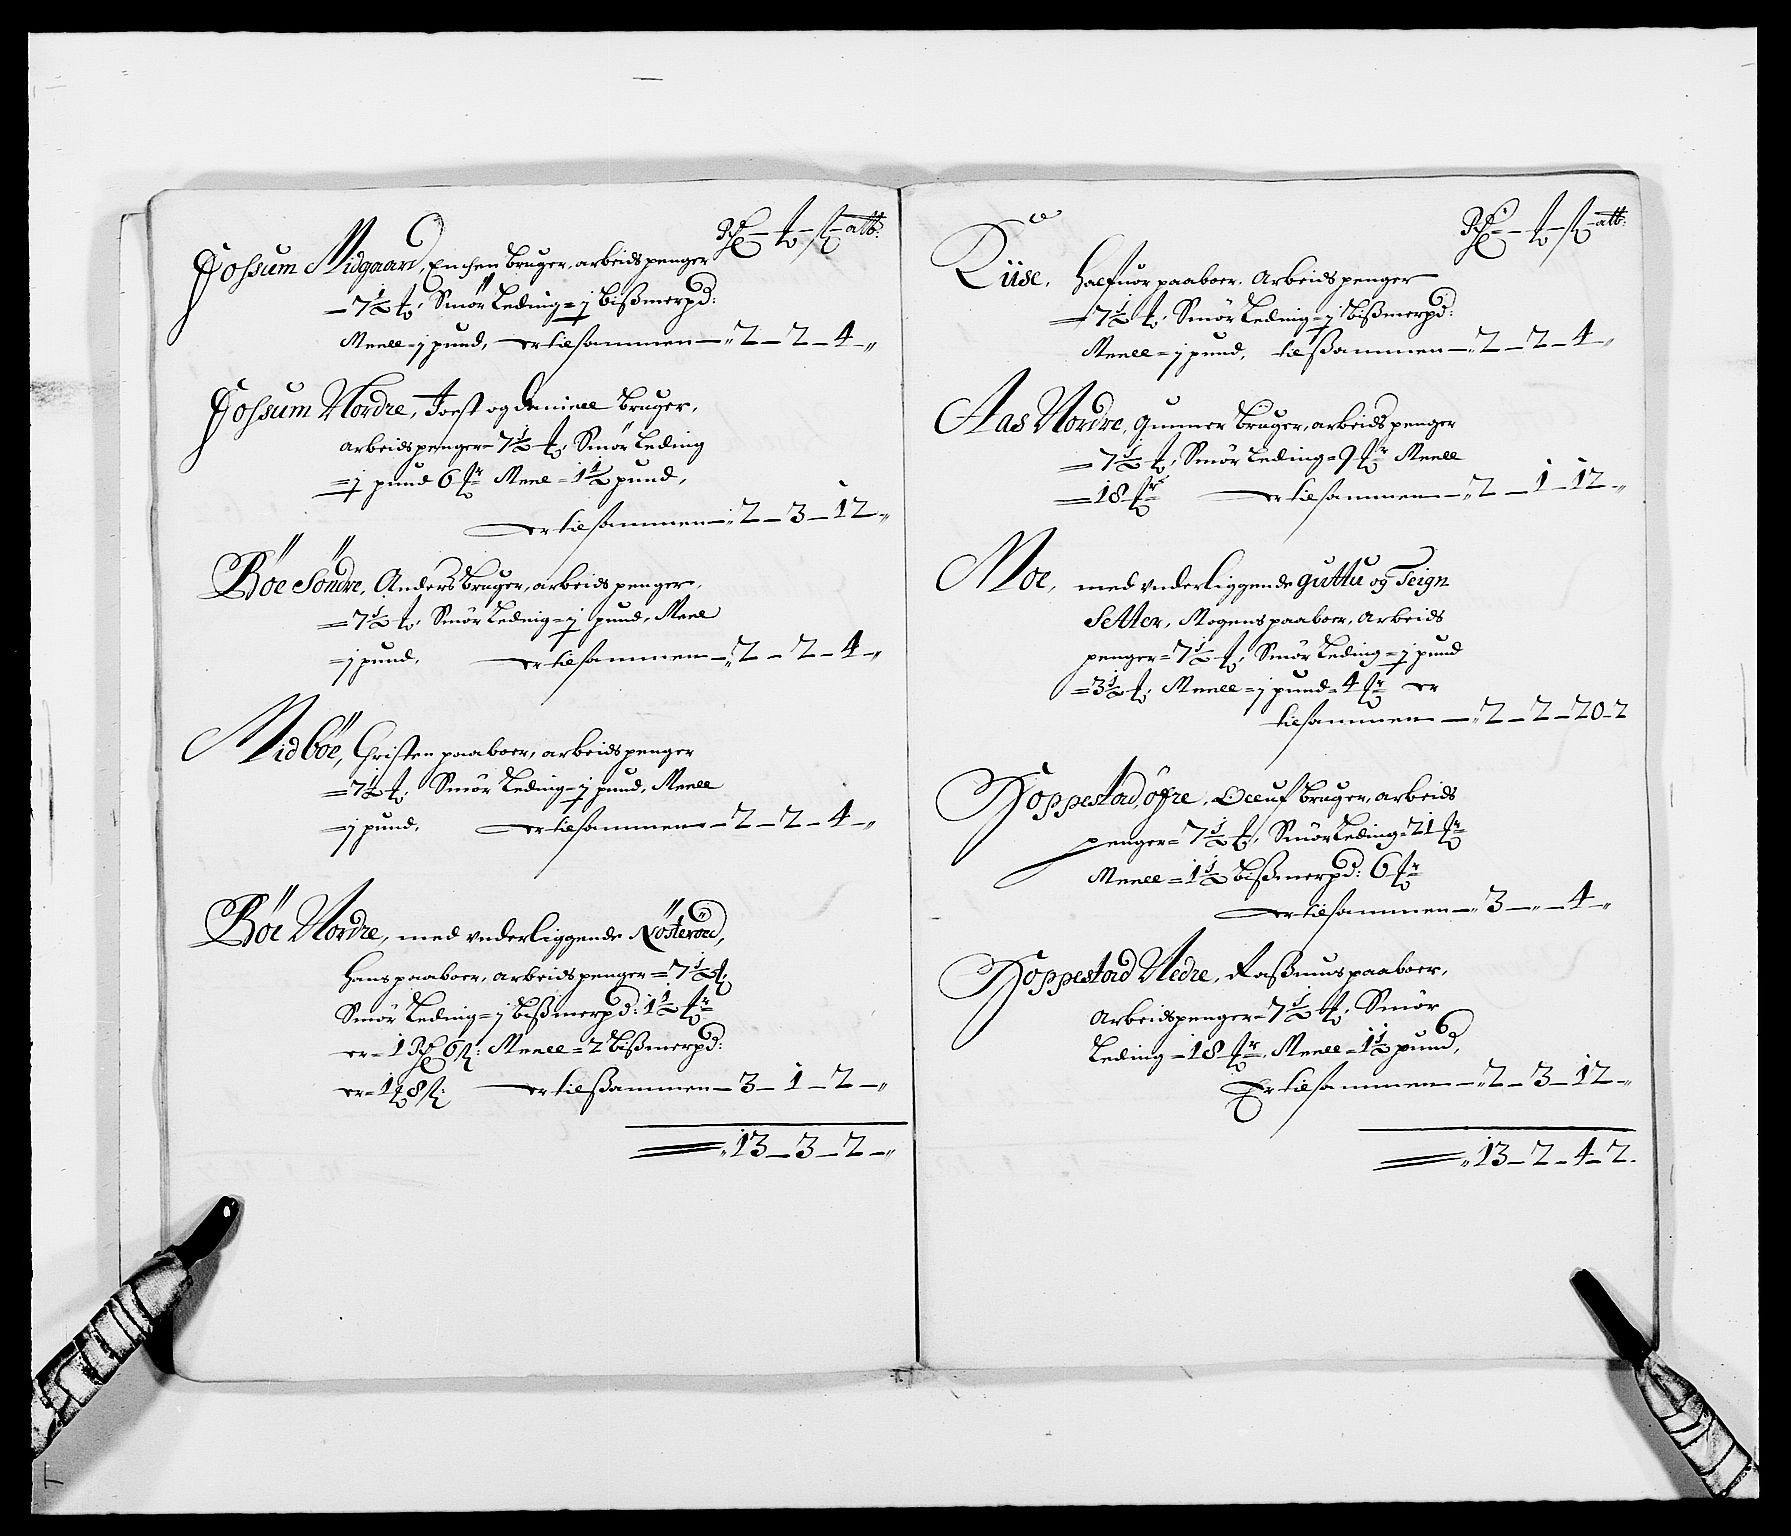 Rdr — ß — alb:
Fossum Midgaard, Enchen bruger, arbeids penger
— 7½ Smör Leding = j bißmerpd:
Meell = j pund, er tilsammen — 2 — 2 — 4 — „
Fossum Nordre, Joest og Deniell bruger,
arbeids penger = 7½ Smör Leding
= j pund 6 Meel = 1½ pund,
er tilsammen — 2 — 3 — 12 „
Böe Söndre, Anders bruger, arbeids penger,
= 7½ Smör Leding = j pund, Meel
= j pund, er tilsammen — 2 — 2 — 4 — „
Midböe, Christen paaboer, arbeids penger
= 7½ Smör Leding = j pund, Meell
= j pund, er tilsammen — 2 — 2 — 4 — „
Böe Nordre, med underliggende Nösteröed,
Hans paaboer, arbeids penger = 7½
Smör Leding = j bißmerpd: 1½
er = 1 Rdr 6 ß: Meell = 2 bißmerpd:
er = 1 8 ß er tilßammen — 3 — 1 — 2 — „
13 — 3 — 2 — „
Rdr — ß — alb:
Riise, Halfuor paaboer. Arbeids penger
= 7½ Smör Leding = j bißmerpd:
Meell = j pund, tilßammen — 2 — 2 — 4 — „
Aas Nordre, Gunner bruger, arbeids penger
= 7½ Smör Leding = 9 Meell
= 18 er tilsammen — 2 — 1 — 12 — „
Moe, med underliggende Guttu og Teign
Setter, Mogens paaboer, Arbeids
penger = 7½ Smör Leding = j pund
= 3½ Meell = j pund = 4 er
tilsammen — 2 — 2 — 20 — 2
Hoppestad, öfre, Oeluf bruger, arbeids
penger = 7½ Smör Leding = 21
Meell = 1½ bißmerpd: 6
er tilsammen — 3 — „ — 4 — „
Hoppestad Nedre, Raßmus paaboer,
Arbeids penger = 7½ Smör
Leding = 18 Meell = 1½ pund,
Er tilsammen — 2 — 3 — 12 — „
13 — 2 — 4 — 2.